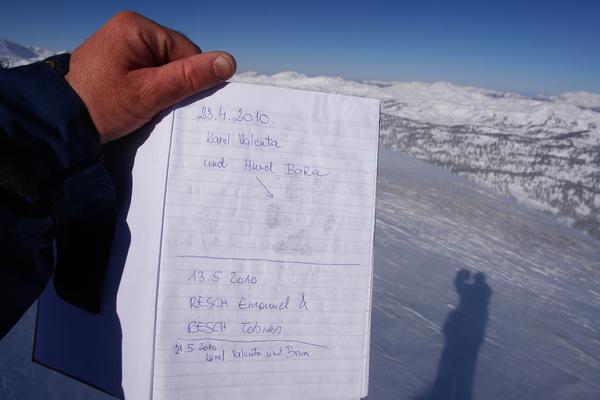 23.4.2010
Karel Valenta
und Hund BaRa
13.5.2010
RESCH Emanuel &
RESCH Tobias
21.5.2010
Karel Valenta und Bara